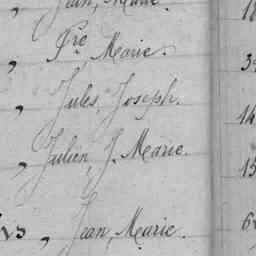 Jean, Marie.
, Pre Marie.
, Jules, Joseph.
, Julien, J. Marie.
, Jean, Marie.